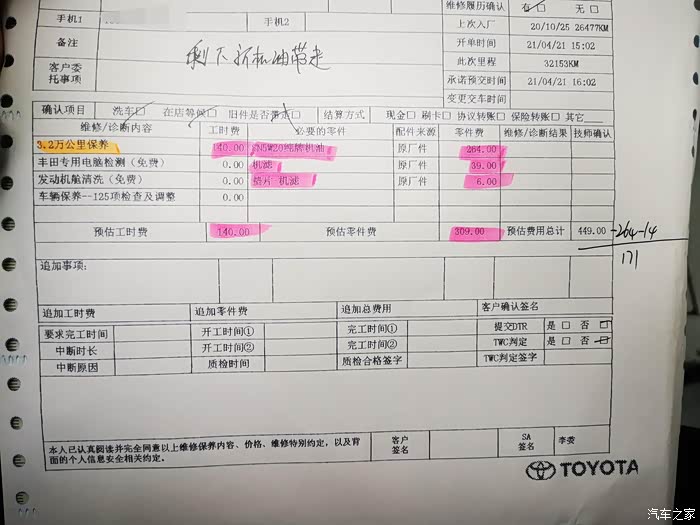 维修履历确认 有□ 无□
手机1 手机2 上次入厂 20/10/25 26477KM
备注 开单时间 21/04/21 15:02
剩下新机油带走
此次里程 32153KM
客户委托事项 承诺预交时间 21/04/21 16:02
变更交车时间
确认项目 洗车□ 在店等候□ 旧件是否带走□ 结算方式 现金□ 刷卡□ 协议转账□ 保险转账□ 其它
维修/诊断内容 工时费 必要的零件 配件来源 零件费 维修/诊断结果 技师确认
3.2万公里保养 140.00 SN5W20纯牌机油 原厂件 264.00
丰田专用电脑检测（免费） 0.00 机滤 原厂件 39.00
发动机舱清洗（免费） 0.00 垫片 机滤 原厂件 6.00
车辆保养--125项检查及调整 0.00
预估工时费 140.00 预估零件费 309.00 预估费用总计 449.00 -264-14
171
追加事项:
追加工时费 追加零件费 追加总费用 客户确认签名
要求完工时间 开工时间① 完工时间① 提交DTR 是□ 否□
中断时长 开工时间② 完工时间② TWC判定 是□ 否□
中断原因 质检时间 质检合格签字 TWC判定签字
本人已认真阅读并完全同意以上维修保养内容、价格、维修特别约定，以及背面的个人信息安全相关约定。
客户签名 SA签名
TOYOTA
汽车之家